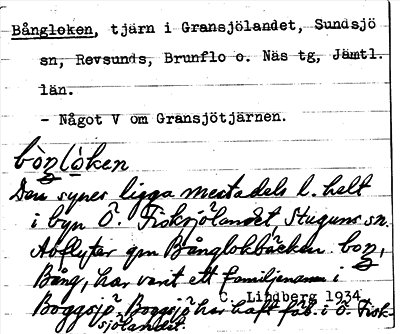 Bångloken, tjärn i Gransjölandet, Sundsjö
sn, Revsunds, Brunflo o. Näs tg, Jämtl.
län.
- Något V om Gransjötjärnen.
bòŋlòken
Den synes ligga mestadels l. helt
i byn Ö. Fisksjölandet, Stuguns sn.
Avflyter gm Bånglokbäcken. boŋ,
Bång, har varit ett familjenamn i
C. Lindberg 1934
Boggsjö. Boggsjö har haft fäb. i Ö. Fisk-
sjölandet.